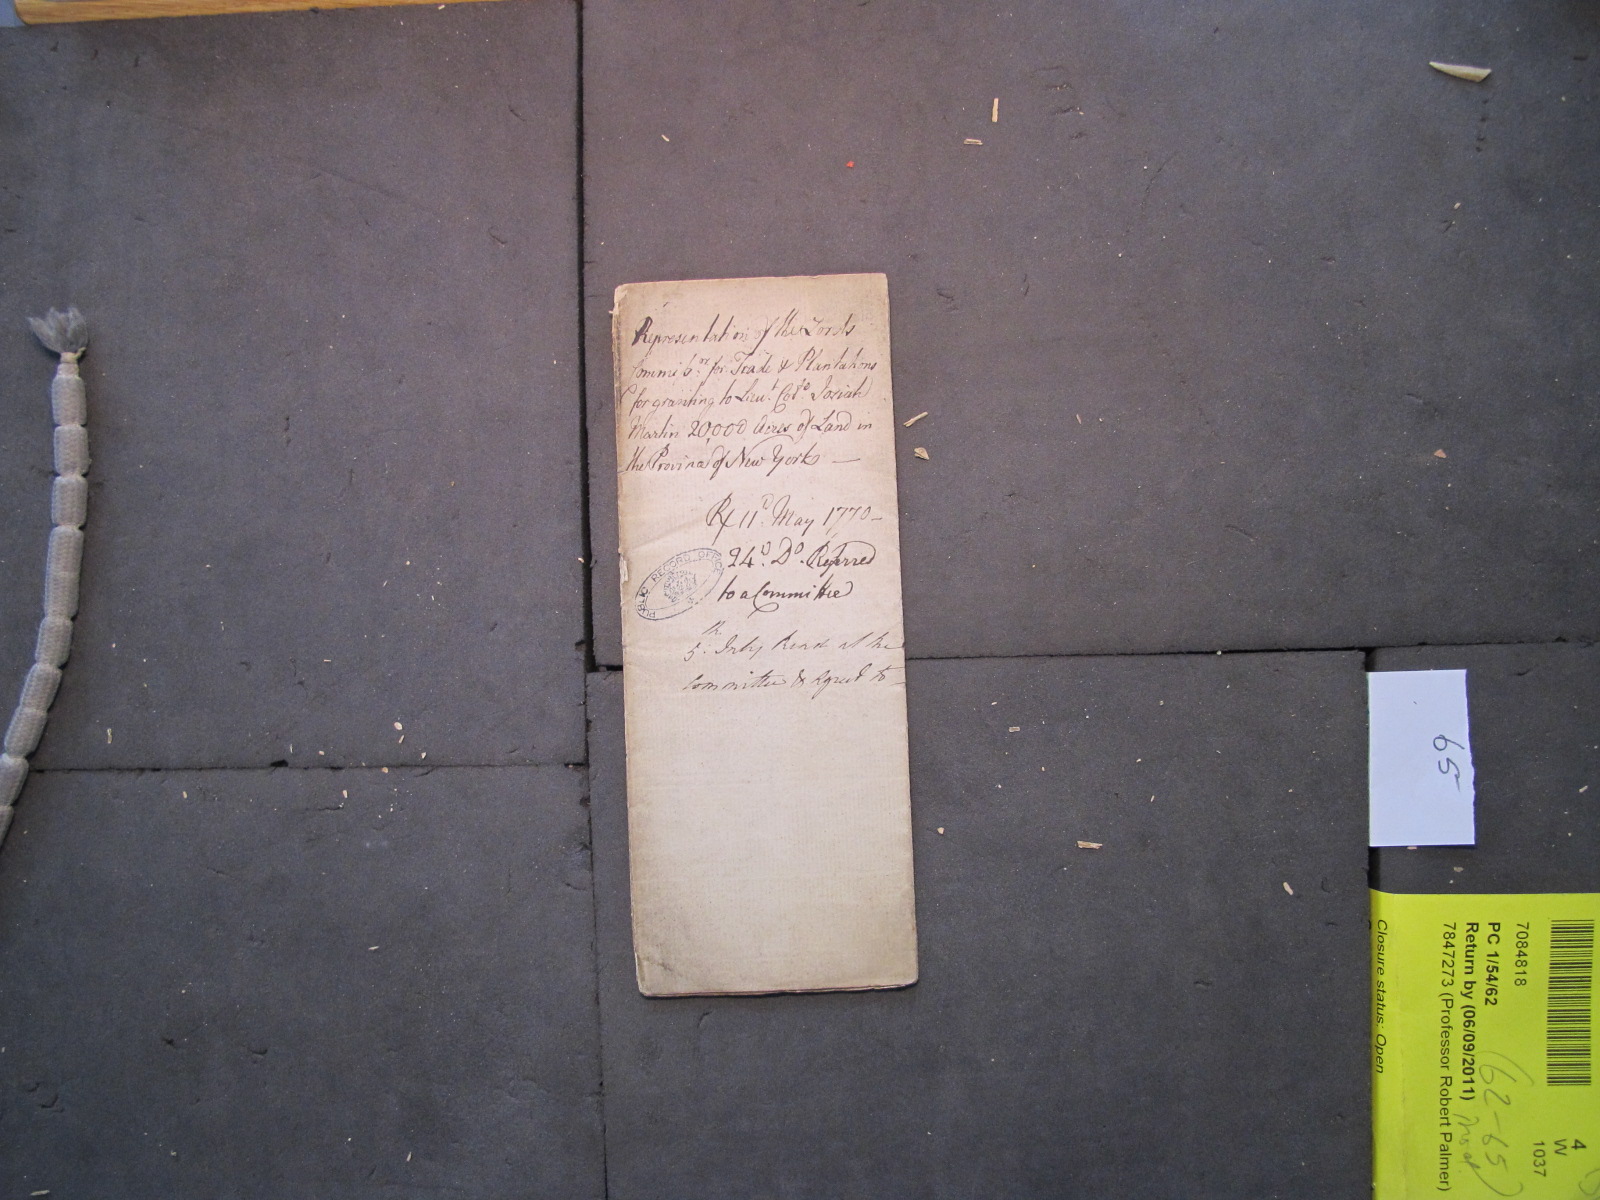 Representation of the Lords
Commiss.rs for Trade & Plantations
for granting to Lieu.t Col.o Josiah
Martin 20,000 Acres of Land in
the Province of New York —
Rx 11.o May 1770 -
24.o D.o Referred
to a Committee
5.th July Read at the
Committee & Agreed to -
PUBLIC RECORD OFFICE
65
7084818
PC 1/54/62
Return by (06/09/2011)
7847273 (Professor Robert Palmer)
Closure status: Open
(62-65)
4
W
1037